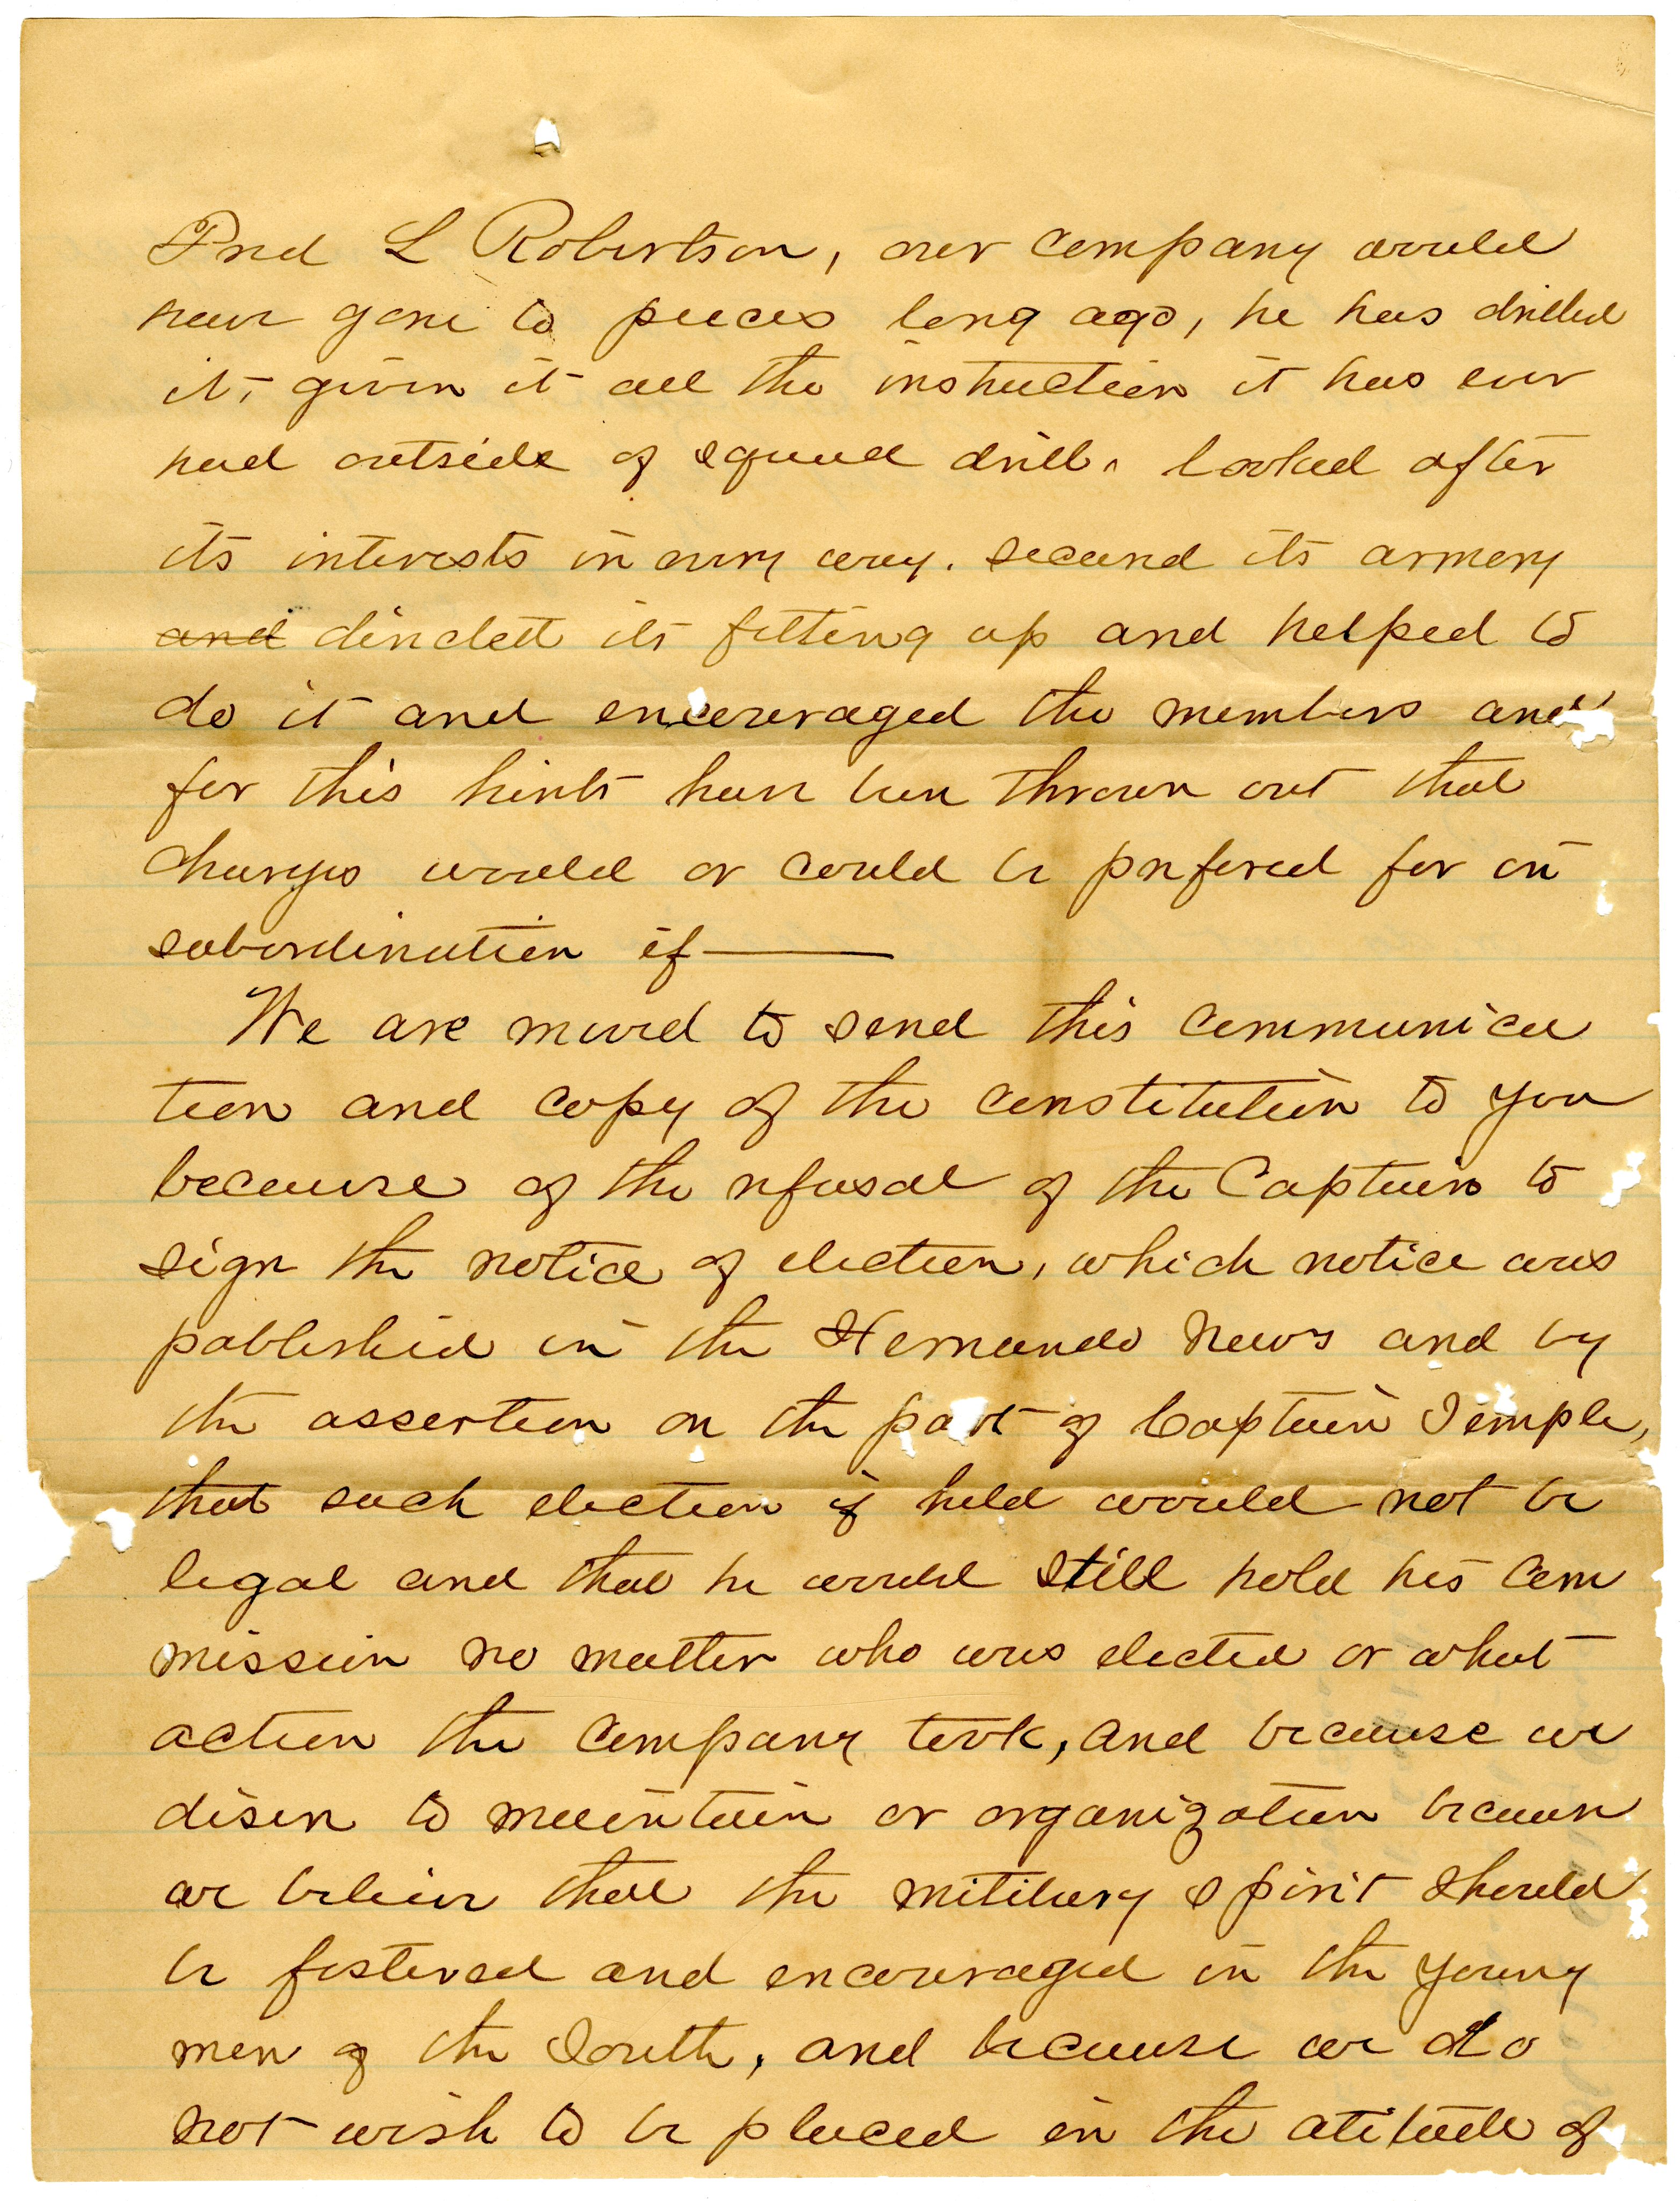 Fred L Robertson, our company would
have gone to pieces long ago, he has drilled
it, given it all the instruction it has ever
had outside of squad drill, looked after
its interests in every way. secured its armory
and directed its fitting up and helped to
do it and encouraged the members and
for this hints have been thrown out that
charges would or could be prefered for in
subordination if ———
We are moved to send this communica
tion and copy of the constitution to you
because of the refusal of the Captain to
sign the notice of election, which notice was
published in the Hernando News and by
the assertion on the part of Captain Temple,
that such election if held would not be
legal and that he would still hold his com
mission no matter who was elected or what
action the company took, and because we
desire to maintain or organization because
we believe that the military spirit should
be fostered and encouraged in the young
men of the South, and because we do
not wish to be placed in the atitude of